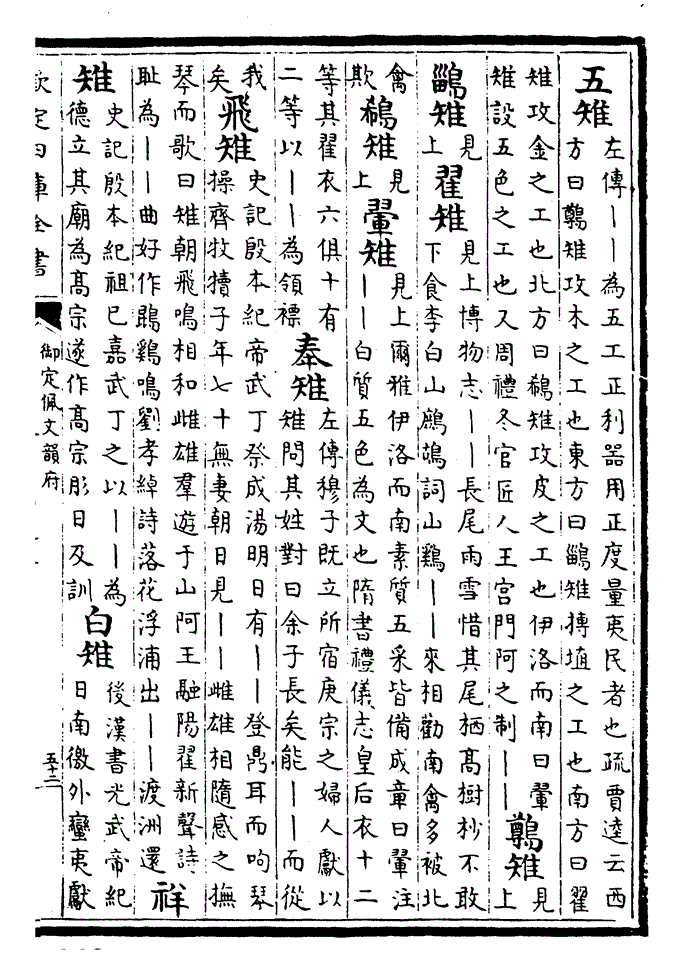 五雉 左傳丨丨為五工正利器用正度量夷民者也疏賈逵云西
方曰鷷雉攻木之工也東方曰鶅雉摶埴之工也南方曰翟
雉攻金之工也北方曰鵗雉攻皮之工也伊洛而南曰翬
雉設五色之工也又周禮冬官匠人王宮門阿之制丨丨 鷷雉 見上
鶅雉 見上 翟雉 見上博物志丨丨長尾雨雪惜其尾栖髙樹杪不敢
下食李白山鷓鴣詞山鷄丨丨來相勸南禽多被北
禽欺 鵗雉 見上 翬雉 見上爾雅伊洛而南素質五采皆備成章曰翬注
丨丨白質五色為文也隋書禮儀志皇后衣十二
等其翟衣六俱十有
二等以丨丨為領褾 奉雉 左傳穆子既立所宿庚宗之婦人獻以
雉問其姓對曰余子長矣能丨丨而從
我矣 飛雉 史記殷本紀帝武丁祭成湯明日有丨丨登鼎耳而呴琴
操齊牧犢子年七十無妻朝日見丨丨雌雄相隨感之撫
琴而歌曰雉朝飛鳴相和雌雄羣遊于山阿王融陽翟新聲詩
恥為丨丨曲好作鵾鷄鳴劉孝綽詩落花浮浦出丨丨渡洲還 祥
雉 史記殷本紀祖巳嘉武丁之以丨丨為
德立其廟為髙宗遂作髙宗肜日及訓 白雉 後漢書光武帝紀
日南徼外蠻夷獻
欽定四庫全書
御定佩文韻府
五十二